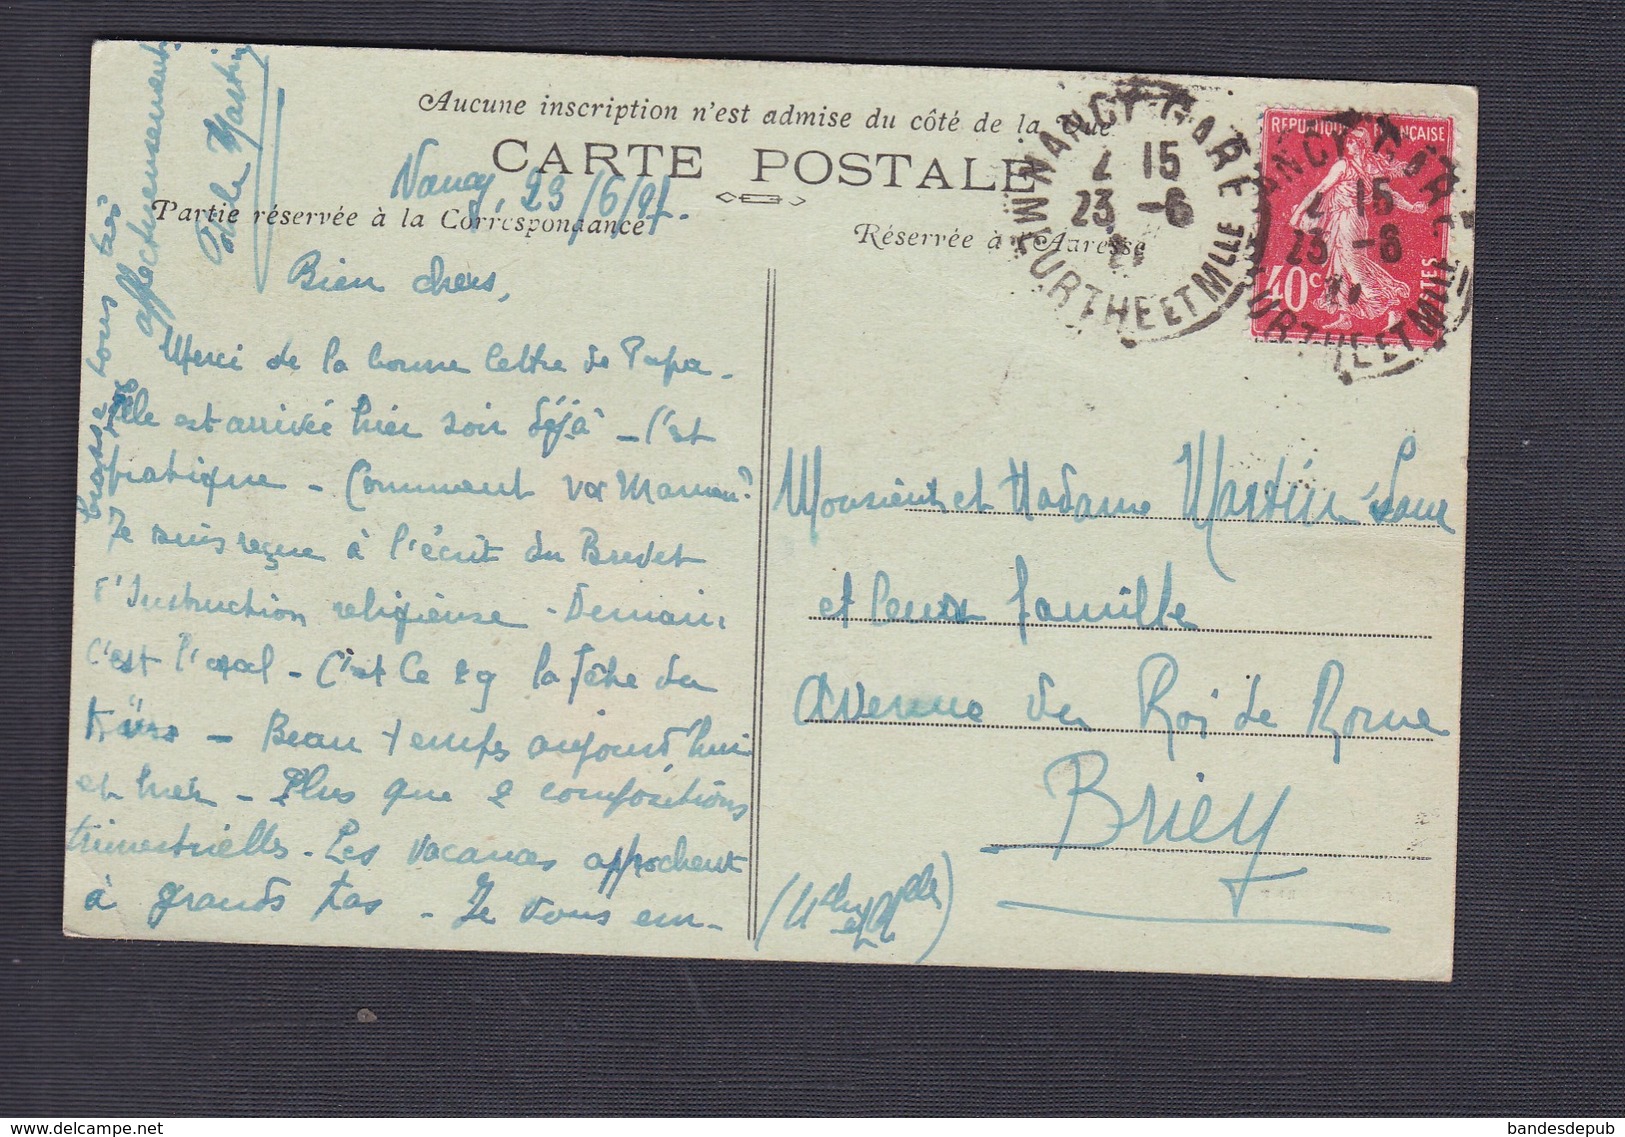 Aucune inscription n'est admise du côté de la vue
CARTE POSTALE
Nancy, 23/6/27.
Partie réservée à la Correspondance
Réservée à l'Adresse
NANCY GARE
2 15
23 - 6
MEURTHE ET MLLE
REPUBLIQUE FRANÇAISE
40 c
POSTES
Bien chers,
Merci de la bonne lettre de Papa.
Elle est arrivée hier soir déjà - C'est
pratique - Comment va Maman?
Je suis reçue à l'écrit du Brevet
d'Instruction religieuse - Demain,
c'est l'oral - C'est le 29 la fête du
- Beau temps aujourd'hui
et hier - Plus que 2 compositions
trimestrielles - Les vacances approchent
à grands pas - Je vous em-
brasse tous très
affectueusement.
Martin
Monsieur et Madame Martin
et leur famille
Avenue du Roi de Rome
Briey
(Mthe et Mlle)
bandesdepub